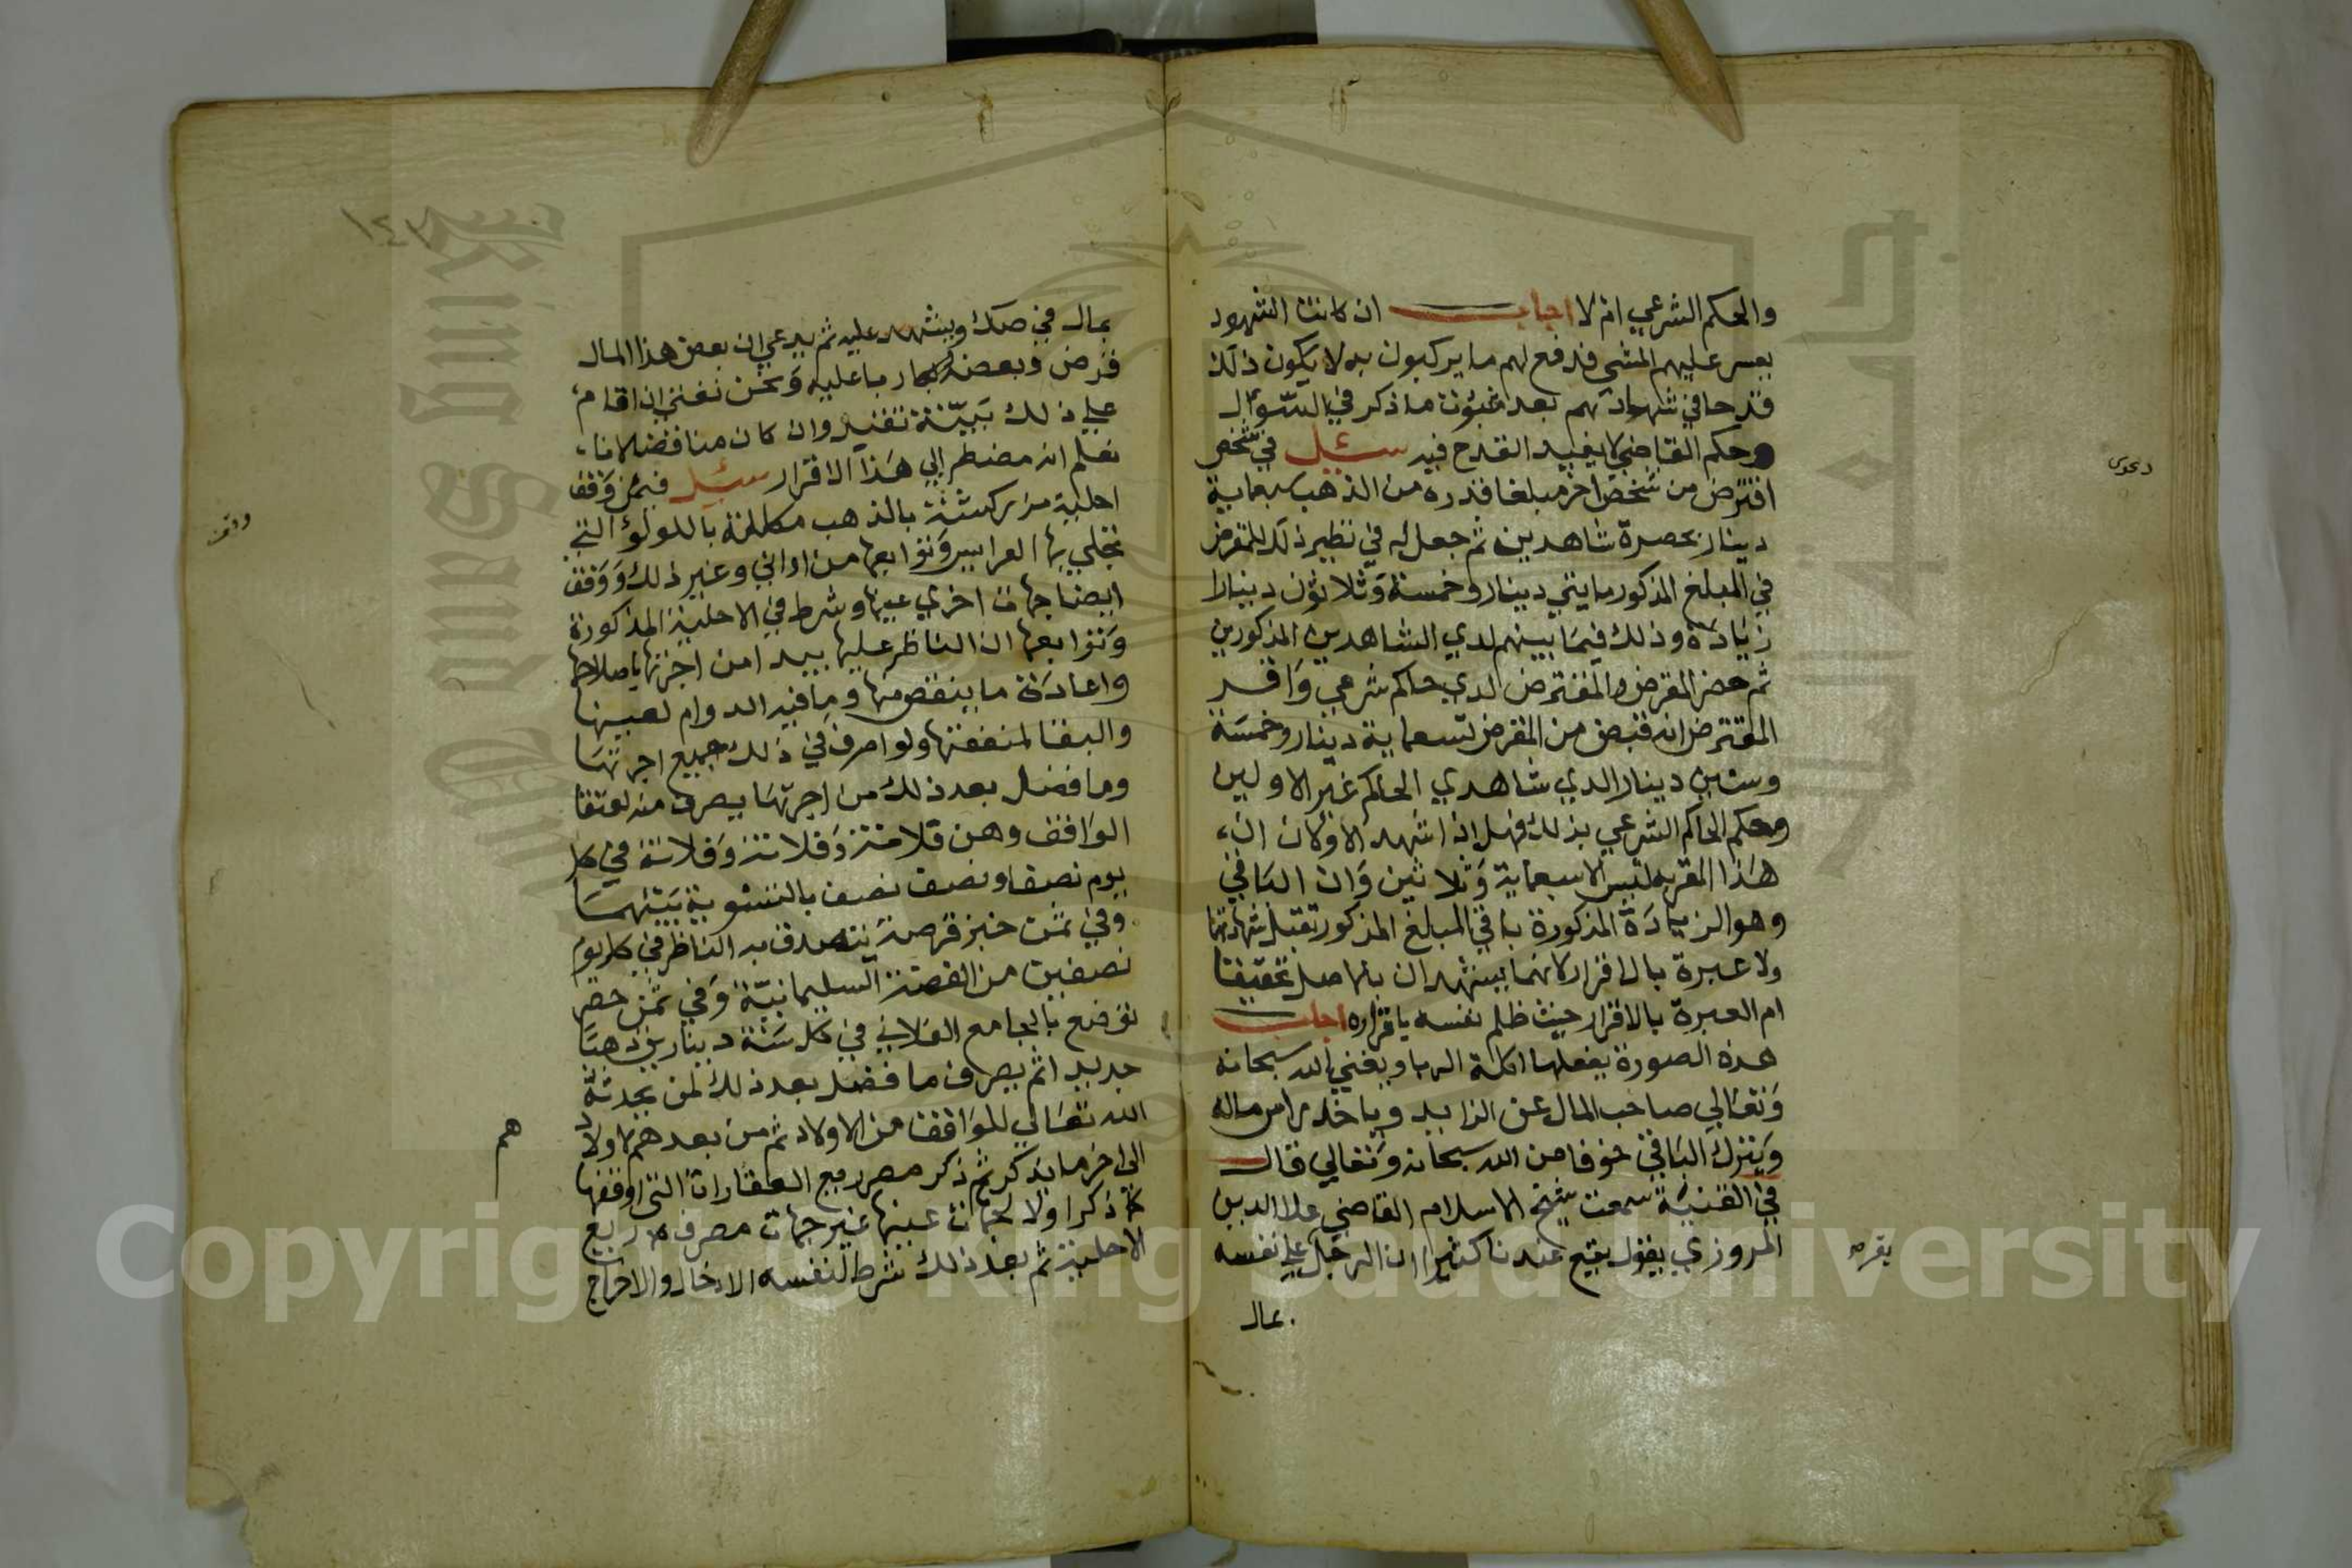 والحكم الشرعي ام لا اجاب ان كانت الشهود
يعسر عليهم المشي فدفع لهم ما يركبون به لا يكون ذلك
قدحا في شهادتهم بعد ثبوت ما ذكر في السؤال
وحكم القاضي لا يفيد القدح فيه سئل في شخص
اقترض من شخص اخر مبلغا قدره من الذهب سبعماية
دينار بحضرة شاهدين ثم جعل له في نظير ذلك للمقرض
في المبلغ المذكور مايتي دينار وخمسة وثلاثون دينارا
زيادة وذلك فيما بينهم لدي الشاهدين المذكورين
ثم حضر المقرض والمقترض لدي حاكم شرعي واقر
المقترض انه قبض من المقرض تسعماية دينار وخمسة
وستين دينارا لدي شاهدي الحاكم غير الاولين
وحكم الحاكم الشرعي بذلك فهل اذا شهد الاولان ان
هذا المقر به ليس الا سبعماية وثلاثين وان الباقي
وهو الزيادة المذكورة باقي المبلغ المذكور تقبل شهادتهما
ولا عبرة بالاقرار لانهما يشهدان باصل تحقيقا
ام العبرة بالاقرار حيث ظلم نفسه باقراره اجاب
هذه الصورة يفعلها اكلة الربا ويغني الله سبحانه
وتعالي صاحب المال عن الزايد وياخذ راس ماله
ويترك الباقي خوفا من الله سبحانه وتعالي قال
في القنية سمعت شيخ الاسلام القاضي علا الدين
المروزي يقول يقع عندنا كثيرا ان الرجل علي نفسه
بمال
دعوى
يقر
١٤٢
بمال في صك ويشهد عليه ثم يدعي ان بعض هذا المال
قرض وبعضه ربا عليه ونحن نفتي ان اقام
علي ذلك بينة تقبل وان كان مناقضا لانا
نعلم انه مضطر الي هذا الاقرار سئل فيمن وقف
احلية مزركشة بالذهب مكللة باللولؤ التي
تجلي بها العرايس وتوابعها من اواني وغير ذلك ووقف
ايضا جهات اخري عينها وشرط في الاحلية المذكورة
وتوابعها ان الناظر عليها يبدا من اجرتها باصلاحها
واعادة ما ينقص منها وما فيه الدوام لعينها
والبقا لمنفعتها ولو اصرف في ذلك جميع اجرتها
وما فضل بعد ذلك من اجرتها يصرف منه لعتقا
الواقف وهن فلانة وفلانة وفلانة في كل
يوم نصفا ونصف نصف بالتسوية بينهما
وفي ثمن خبز قرصة يتصدق به الناظر في كل يوم
نصفين من الفضة السليمانية وفي ثمن حصر
توضع بالجامع الفلاني في كل سنة دينارين ذهبا
جديدا ثم يصرف ما فضل بعد ذلك لمن يحدثه
الله تعالي للواقف من الاولاد ثم من بعدهم لاولاد
الي اخر ما يذكر ثم ذكر مصرف ريع العقارات التي اوقفها
اولا لجهات عينها غير جهات مصرف ريع
الاحلية ثم بعد ذلك شرط لنفسه الادخال والاخراج
وقف
هم
Copyright © King Saud University